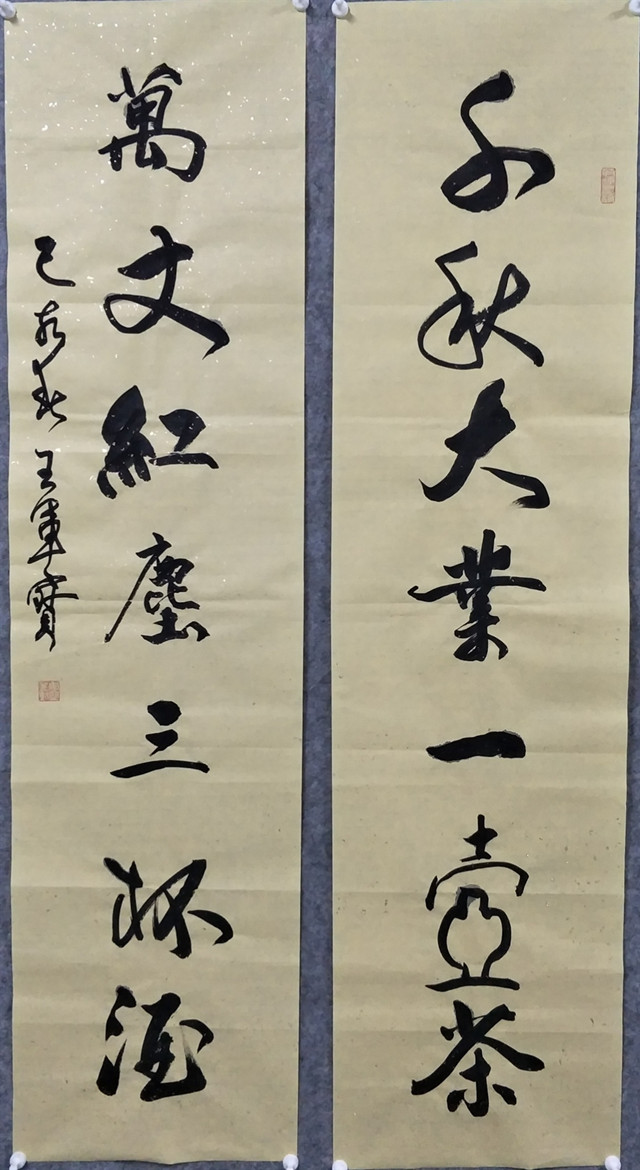 千秋大業一壺茶
萬丈紅塵三杯酒
己亥春王軍寶